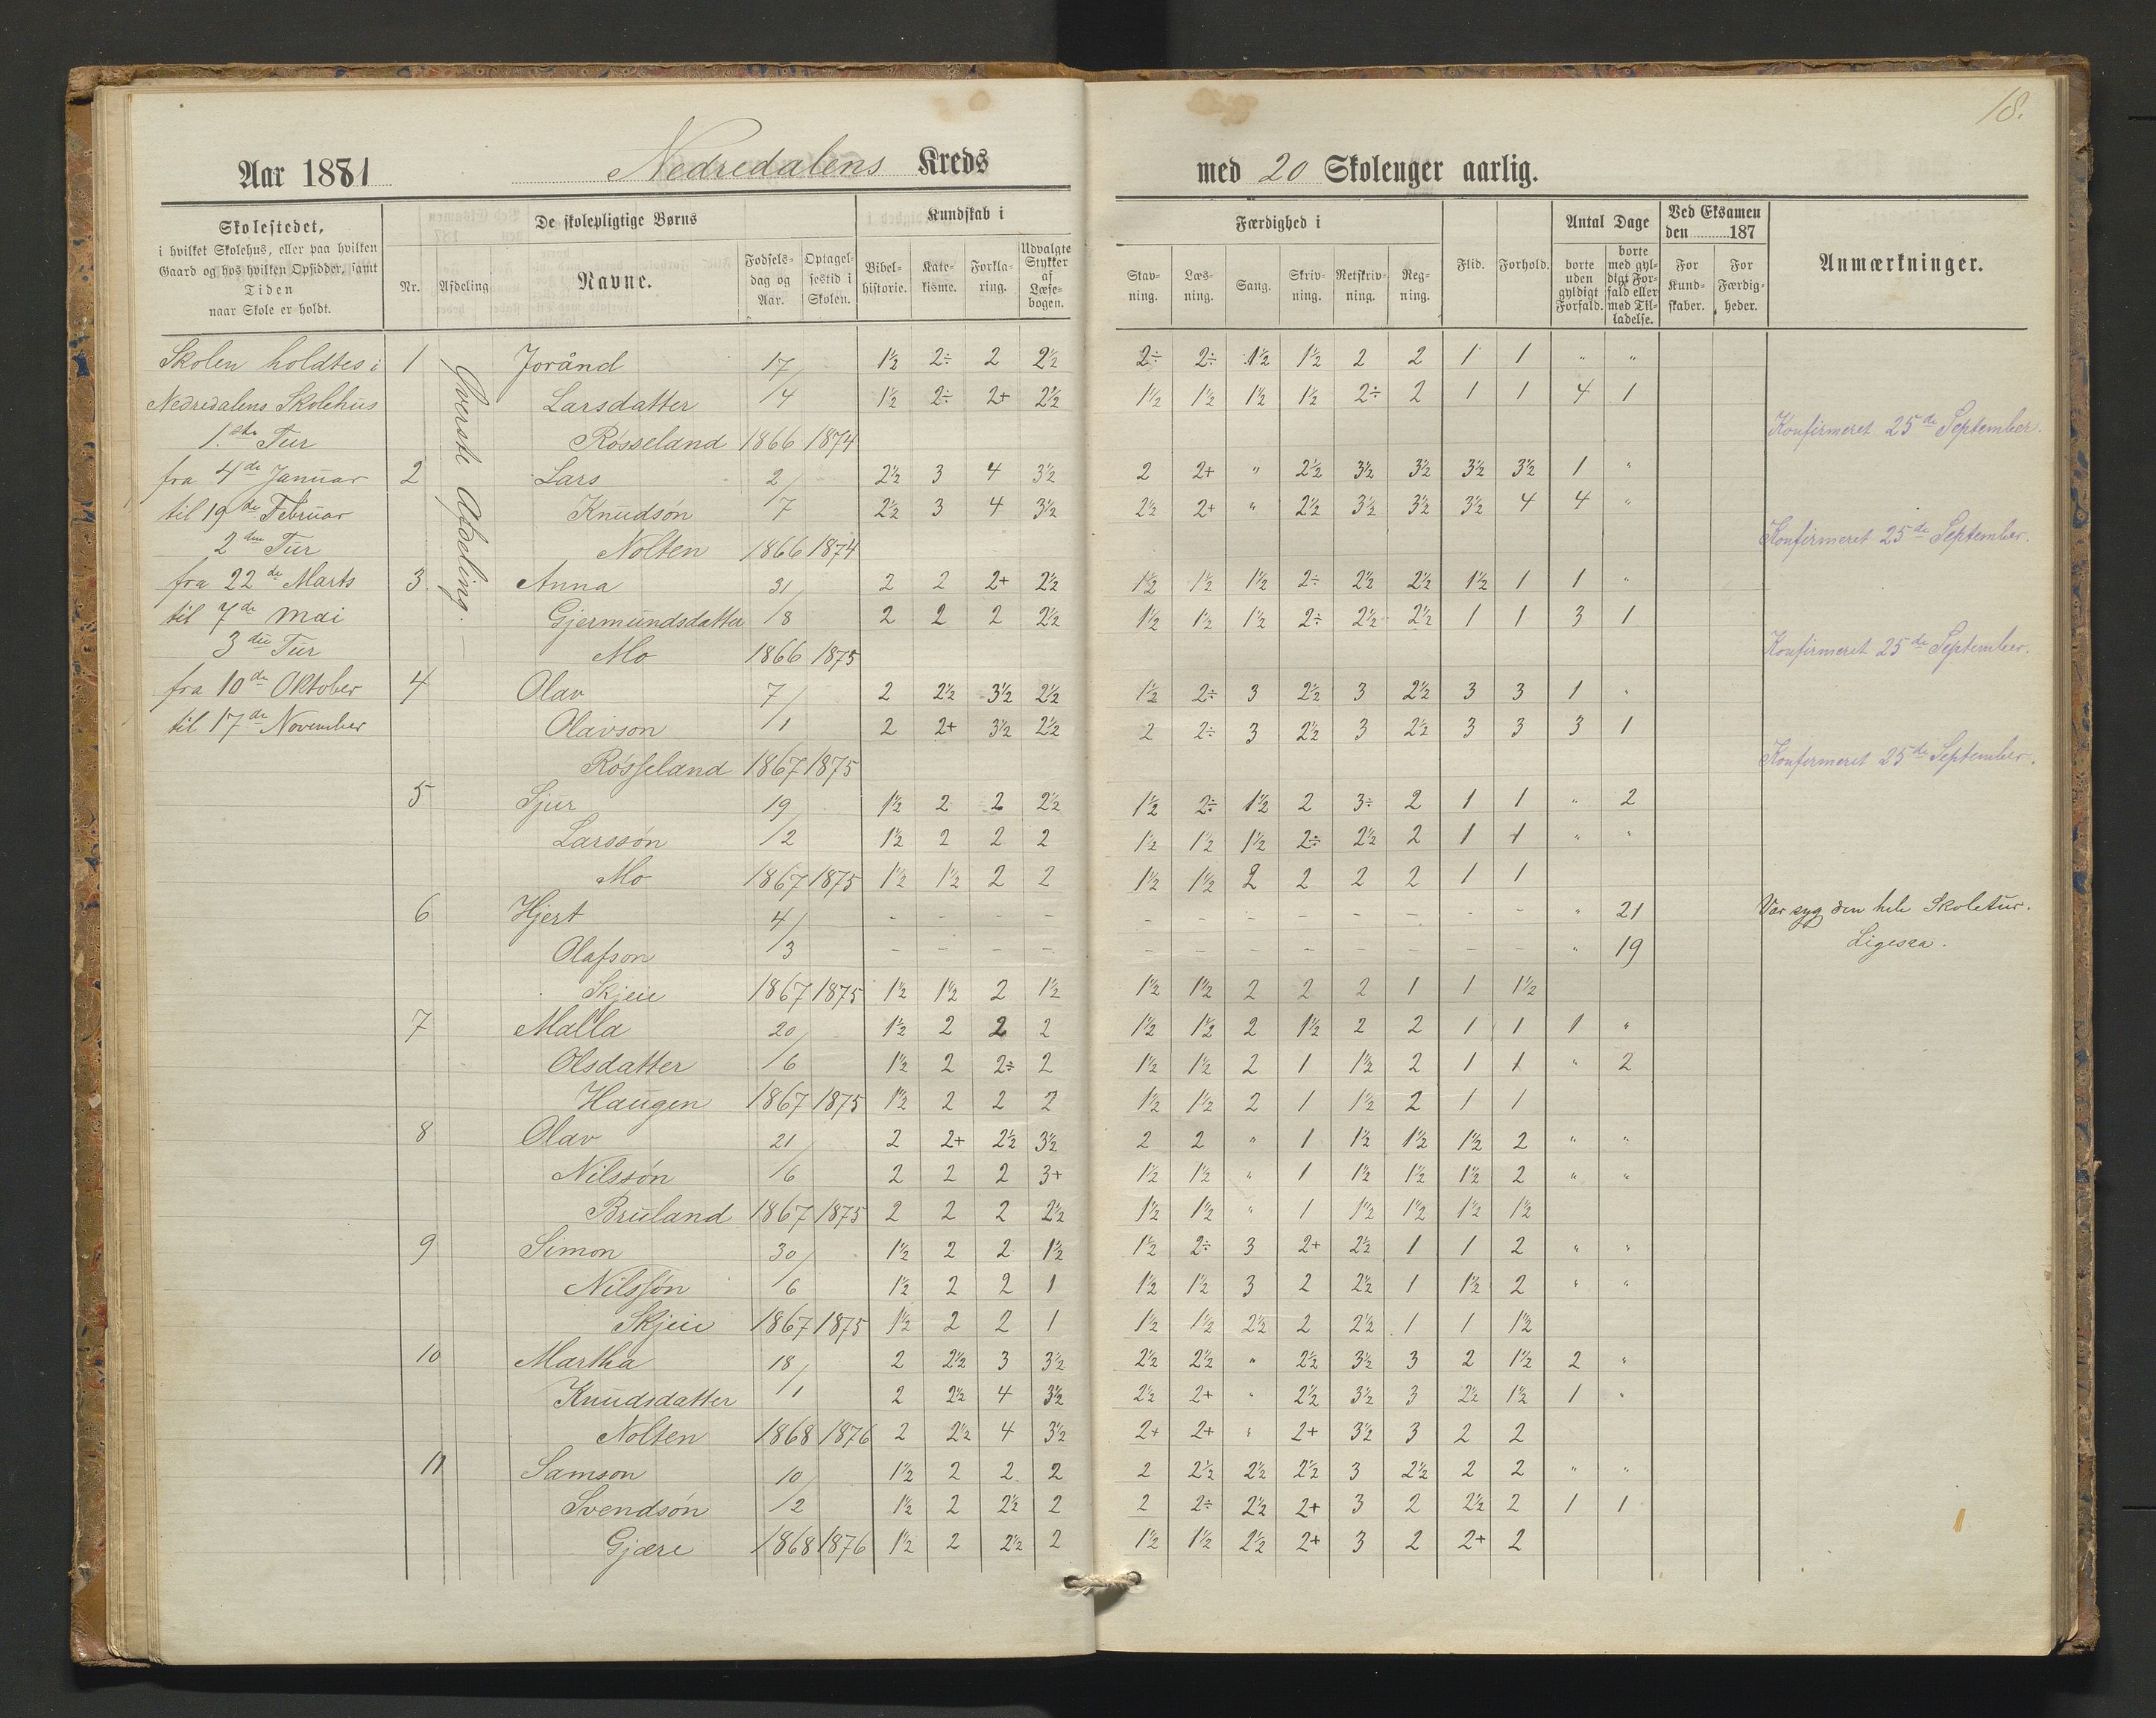 18.
Aar 1881 Nedredalens Kreds med 20 Skoleuger aarlig.
Skolestedet, i hvilket Skolehus, eller paa hvilken Gaard og hos hvilken Opsidder, samt Tiden naar Skole er holdt.
De skolepligtige Børns
Nr. Afdeling Navne. Fødselsdag og Aar. Optagelsestid i Skolen.
Kundskab i
Bibelhistorie. Katekisme. Forklaring. Udvalgte Stykker af Læsebogen.
Færdighed i
Stavning. Læsning. Sang. Skrivning. Retskrivning. Regning.
Flid. Forhold.
Antal Dage
borte uden gyldigt Forfald. borte med gyldigt Forfald eller med Tilladelse.
Ved Eksamen den 187
For Kundskaber. For Færdigheder.
Anmærkninger.
Skolen holdtes i
Nedredalens Skolehus
1.ste Tur
fra 4de Januar
til 19de Februar
2den Tur
fra 22de Marts
til 7de Mai
3die Tur
fra 10de Oktober
til 17de November
Øverste Afdeling.
1 Joránd 17/ 1½ 2÷ 2 2½ 2÷ 2÷ 1½ 1½ 2 2 1 1 " "
Larsdatter /4 1½ 2÷ 2+ 2½ 1½ 1½ 1½ 1½ 2÷ 2 1 1 4 1
Røsseland 1866 1874 Konfirmeret 25de September.
2 Lars 2/ 2½ 3 4 3½ 2 2+ " 2½ 3½ 3½ 3½ 3½ 1 "
Knudsøn /7 2½ 3 4 3½ 2½ 2+ " 2½ 3½ 3½ 3½ 4 4 "
Nolten 1866 1874 Konfirmeret 25de September.
3 Anna 31/ 2 2 2+ 2½ 1½ 1½ 1½ 2÷ 2½ 2½ 1½ 1 1 "
Gjermundsdatter /8 2 2 2 2½ 1½ 1½ 1½ 2÷ 2½ 2½ 1 1 3 1
Mo 1866 1875 Konfirmeret 25de September.
4 Olav 7/ 2 2½ 3½ 2½ 1½ 2÷ 3 2½ 3 2½ 3 3 1 "
Olavson /1 2 2+ 3½ 2½ 2 2÷ 3 2½ 3 2½ 3 3 3 1
Røsseland 1867 1875 Konfirmeret 25de September.
5 Sjur 19/ 1½ 2 2 2½ 1½ 2÷ 1½ 2 3÷ 2 1 1 " 2
Larssøn /2 1½ 2 2 2 1½ 1½ 1½ 2÷ 2½ 2 1 1 " "
Mo 1867 1875 1½ 1½ 2 2 1½ 1½ 2 2 2 2 1 1
6 Hjert 4/ - - - - - - - - - - - - " 21 Var syg den hele Skoletur.
Olafson /3 - - - - - - - - - - - - " 19 Ligesaa.
Skjeie 1867 1875 1½ 1½ 2 1½ 1½ 1½ 2 2 2 1 1 1½
7 Malla 20/ 1½ 2 2 2 1½ 1½ 2 1½ 2 2 1 1 1 "
Olsdatter /6 1½ 2 2÷ 2 1½ 1½ 2 1 1½ 2 1 1 " 2
Haugen 1867 1875 1½ 2 2 2 1½ 1½ 2 1 1½ 2 1 1
8 Olav 21/ 2 2+ 2½ 3½ 2 2 " 1 1½ 1½ 1½ 2 " "
Nilssøn /6 2 2 2 3+ 1½ 1½ " 1 1½ 1½ 1½ 2 " "
Bruland 1867 1875 2 2 2 2½ 1½ 1½ " 1 1½ 1½ 1½ 1½
9 Simon 30/ 1½ 2 2 1½ 1½ 2÷ 3 2+ 2½ 1 1 2 " "
Nilssøn /6 1½ 2 2 1 1½ 1½ 3 2 2½ 1 1½ 2 " "
Skjeie 1867 1875 1½ 2 2 1 1½ 1½ 2½ 2 2½ 1 1 1½
10 Martha 18/ 2 2½ 3 3½ 2½ 2½ " 2½ 3½ 3 2 1½ 2 "
Knudsdatter /1 2 2½ 4 3½ 2½ 2+ " 2½ 3½ 3 2½ 1½ 1 "
Nolten 1868 1876 2 2½ 4 3½ 2+ 2+ " 2+ 3½ 3 2 2
11 Samson 10/ 1½ 2 2 2 2 2½ 2½ 2½ 3 2½ 2 2 " "
Svendsøn /2 1½ 2 2½ 2 2 2÷ 2½ 2+ 3 2 2½ 2 1 1
Gjære 1868 1876 1½ 2 2½ 2 1½ 1½ 2½ 2+ 3 2 2+ 2